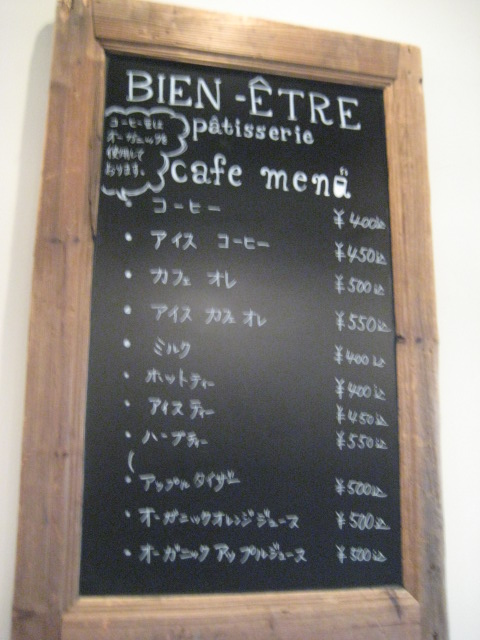 BIEN-ÊTRE
pâtisserie
コーヒー豆は
オーガニックを
使用して
おります。
cafe menu
・コーヒー ¥400
・アイス コーヒー ¥450
・カフェ オレ ¥500
・アイス カフェ オレ ¥550
・ミルク ¥400
・ホットティー ¥400
・アイスティー ¥450
・ハーブティー ¥550
・アップルタイザー ¥500
・オーガニックオレンジジュース ¥500
・オーガニックアップルジュース ¥500